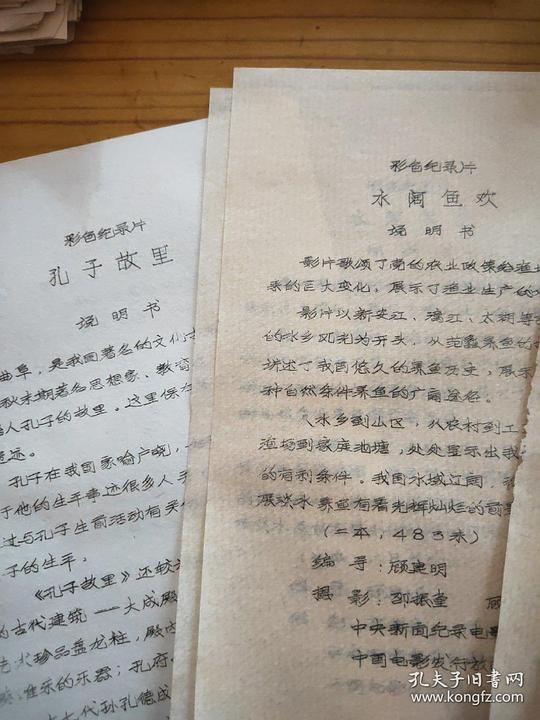 彩色纪录片
孔子故里
说明书
曲阜，是我国著名的文化古
秋末期著名思想家、教育
人孔子的故里。这里保存
遗迹。
孔子在我国家喻户晓，
于他的生平事迹很多人
过与孔子生前活动有关
子的生平。
《孔子故里》还较
的古代建筑——大成殿
艺术珍品盘龙柱，殿内
乐的乐器；孔府、
七代孙孔德成
彩色纪录片
水阔鱼欢
说明书
影片歌颂了党的农业政策给渔业
来的巨大变化，展示了渔业生产的
影片以新安江、漓江、太湖等
的水乡风光为开头，从范蠡养鱼的
讲述了我国悠久的养鱼历史，展示
种自然条件养鱼的广阔途径。
从水乡到山区，从农村到工
渔场到家庭池塘，处处显示出我
的有利条件。我国水域辽阔，
展淡水养鱼有着光辉灿烂的前
（二本，483米）
编导：顾建明
摄影：邵振堂 顾
中央新闻纪录电影
中国电影发行放
孔夫子旧书网
kongfz.com